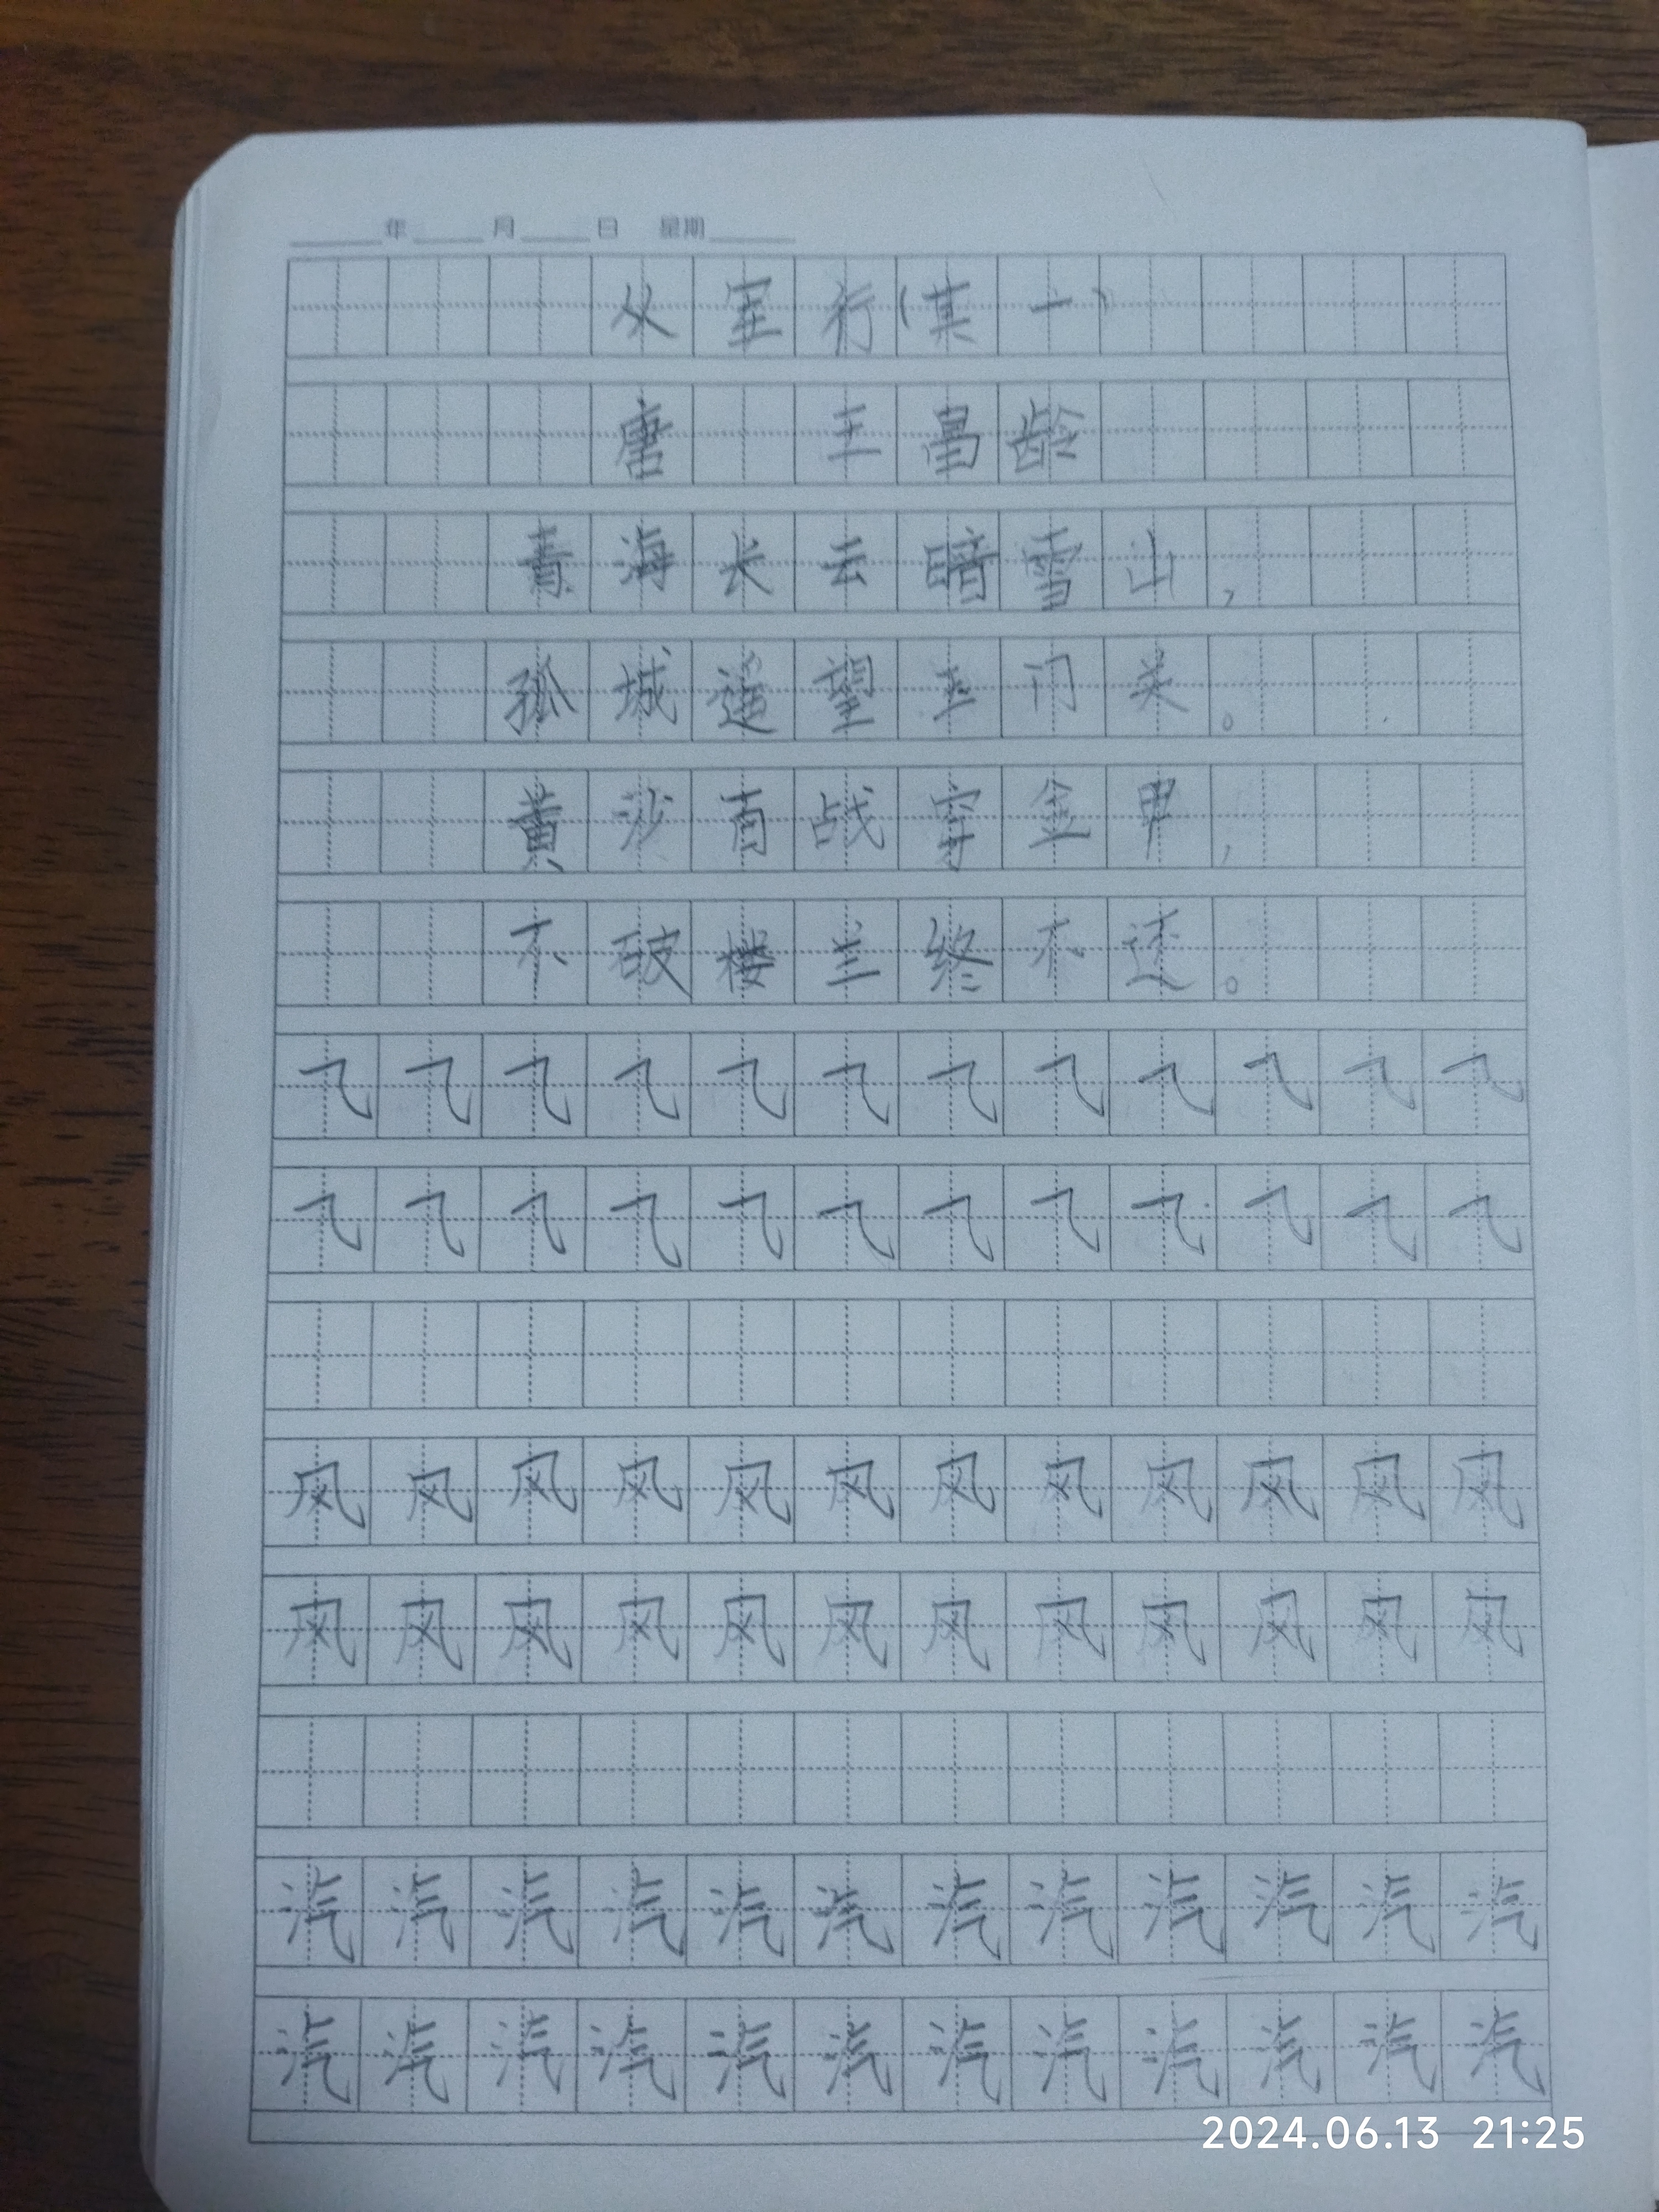 年 月 日 星期
从军行(其一)
唐 王昌龄
青海长云暗雪山,
孤城遥望玉门关。
黄沙百战穿金甲,
不破楼兰终不还。
⺄⺄⺄⺄⺄⺄⺄⺄⺄⺄⺄⺄
⺄⺄⺄⺄⺄⺄⺄⺄⺄⺄⺄⺄
风风风风风风风风风风风风
风风风风风风风风风风风风
汽汽汽汽汽汽汽汽汽汽汽汽
汽汽汽汽汽汽汽汽汽汽汽汽
2024.06.13 21:25